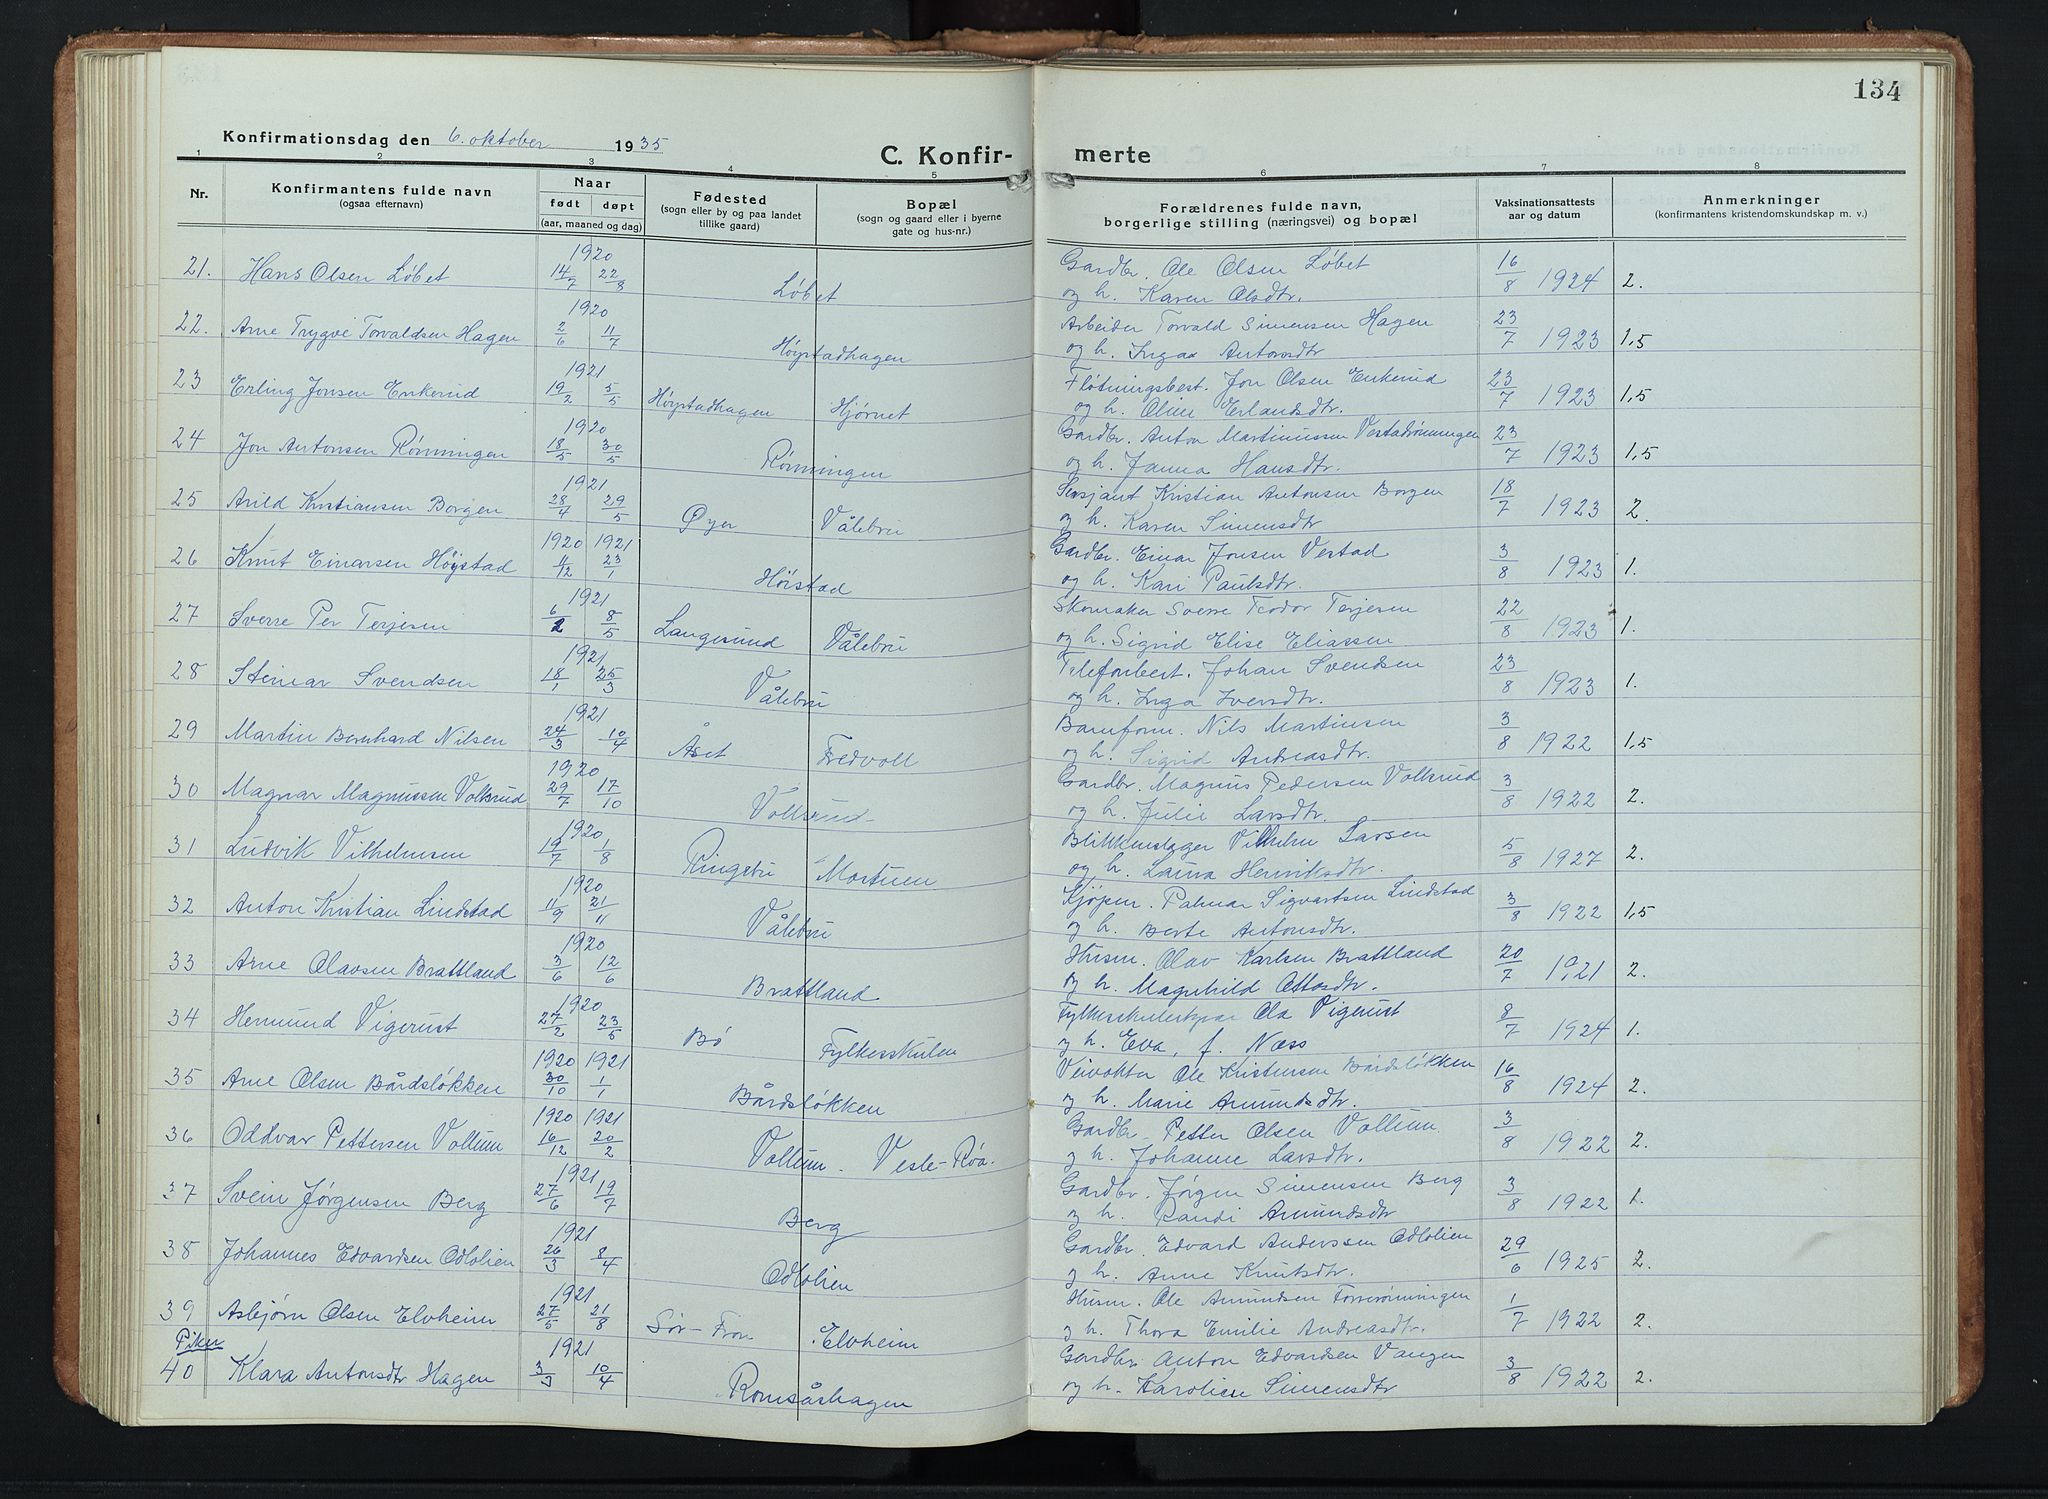 134
Konfirmationsdag den 6. oktober 1935
C. Konfir- merte
1 2 3 4 5 6 7 8
Nr. Konfirmantens fulde navn (ogsaa efternavn) Naar født døpt (aar, maaned og dag) Fødested (sogn eller by og paa landet tillike gaard) Bopæl (sogn og gaard eller i byerne gate og hus-nr.) Forældrenes fulde navn, borgerlige stilling (næringsvei) og bopæl Vaksinationsattests aar og datum Anmerkninger (konfirmantens kristendomskundskap m. v.)
1920
21. Hans Olsen Løbet 14/7 22/8 Løbet Gardbr. Ole Olsen Løbet 16/8 1924 2.
og h. Karen Olsdtr.
1920
22. Arne Trygve Torvaldsen Hagen 2/6 11/7 Høystadhagen Arbeider Torvald Simensen Hagen 23/7 1923 1,5
og h. Inga Antonsdtr
1921
23 Erling Jonsen Enkerud 19/2 5/5 Høystadhagen Hjørnet Fløtningsbest. Jon Olsen Enkerud 23/7 1923 1,5
og h. Oline Erlandsdtr.
1920
24 Jon Antonsen Rønningen 18/5 30/5 Rønningen Gardbr. Anton Martinussen Vestadrønningen 23/7 1923 1,5
og h. Janna Hansdtr.
1921
25 Arild Kristiansen Borgen 28/4 29/5 Øyer Vålebru Sersjant Kristian Antonsen Borgen 18/7 1923 2.
og h. Karen Simensdtr
1920 1921
26 Knut Einarsen Høystad 11/12 23/1 Høistad Gardbr. Einar Jonsen Vestad 3/8 1923 1.
og h. Kari Paulsdtr.
1921
27 Sverre Per Terjesen 6/2 8/5 Langesund Vålebru Skomaker Sverre Teodor Terjesen 22/8 1923 1.
og h. Sigrid Elise Eliassen
1921
28 Steinar Svendsen 18/1 25/3 Vålebru Telefonbest. Johan Svendsen 23/8 1923 1.
og h. Inga Iversdtr.
1921
29 Martin Bernhard Nilsen 24/3 10/4 Åset Fredvoll Banform. Nils Martinsen 3/8 1922 1,5
og h. Sigrid Andreasdtr.
1920
30 Magnar Magnussen Volkrud 29/7 17/10 Volkrud Gardbr. Magnus Pedersen Volkrud 3/8 1922 2.
og h. Julie Larsdtr.
1920
31 Ludvik Vilhelmsen 19/7 1/8 Ringebu Mortuen Blikkenslager Vilhelm Larsen 5/8 1927 2.
og h. Laura Henriksdtr.
1920
32 Anton Kristian Lindstad 11/9 21/11 Vålebru Kjøpm. Palmar Sigvartsen Lindstad 3/8 1922 1,5
og h. Berte Antonsdtr.
1920
33 Arne Olavsen Brattland 3/6 12/6 Brattland Husm. Olav Karlsen Brattland 20/7 1921 2.
og h. Magnhild Ottosdtr.
1920
34 Hermund Vigerust 27/2 23/5 Bø Fylkesskulen Ola Vigerust 8/7 1924 1.
og h. Eva, f. Næss
1920 1921
35 Arne Olsen Bårdsløkken 30/10 1/1 Bårdsløkken Veivokter Ole Kristensen Bårdsløkken 16/8 1924 2.
og h. Marie Amundsdtr.
1920 1921
36 Oddvar Pettersen Vollum 16/12 20/2 Vollum. Vesle-Røa. Gardbr. Petter Olsen Vollum. 3/8 1922 2.
og h. Johanne Larsdtr.
1921
37 Svein Jørgensen Berg 27/6 19/7 Berg Gardbr. Jørgen Simensen Berg 3/8 1922 1.
og h. Randi Amundsdtr
1921
38 Johannes Edvardsen Odlolien 26/3 8/4 Odlolien Gardbr. Edvard Anderssen Odlolien 29/6 1925 2.
og h. Anne Knutsdtr.
1921
39 Asbjørn Olsen Elvheim 27/5 21/8 Sør-Fron Elvheim Husm. Ole Amundsen Forrerønningen 1/7 1922 2.
og h. Thora Emilie Andreasdtr.
Piker 1921
40 Klara Antonsdtr Hagen 3/3 10/4 Romsåshagen Gardbr. Anton Edvardsen Vangen 3/8 1922 2.
og h. Karoline Simensdtr